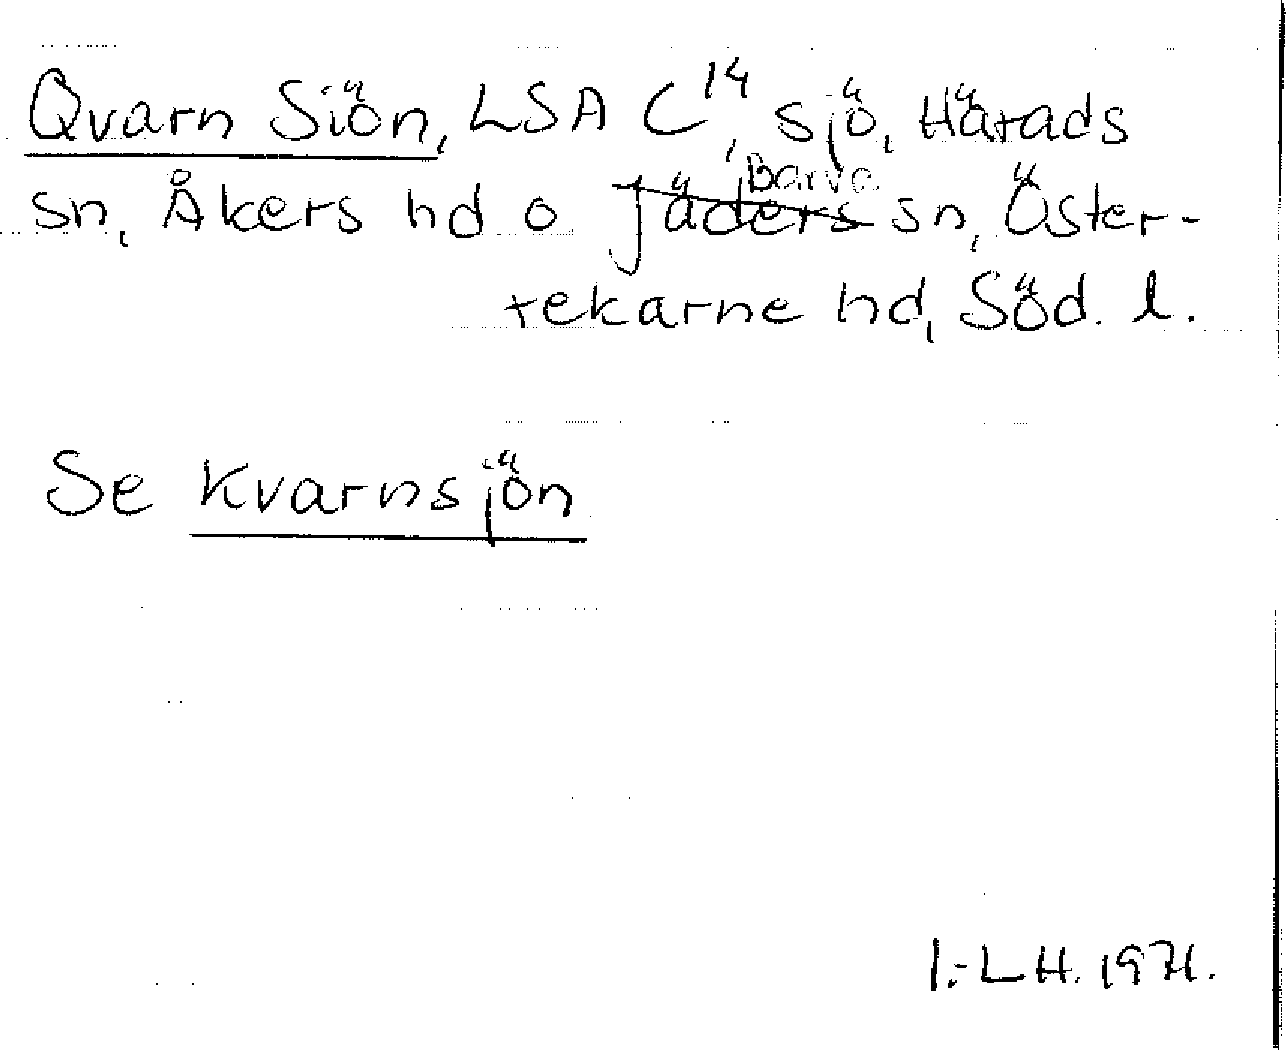 Qvarn Siön, LSA C¹⁴, sjö, Härads
sn, Åkers hd o Barva sn, Öster-
rekarne hd, Söd. l.
Se Kvarnsjön
I.-LH. 1971.